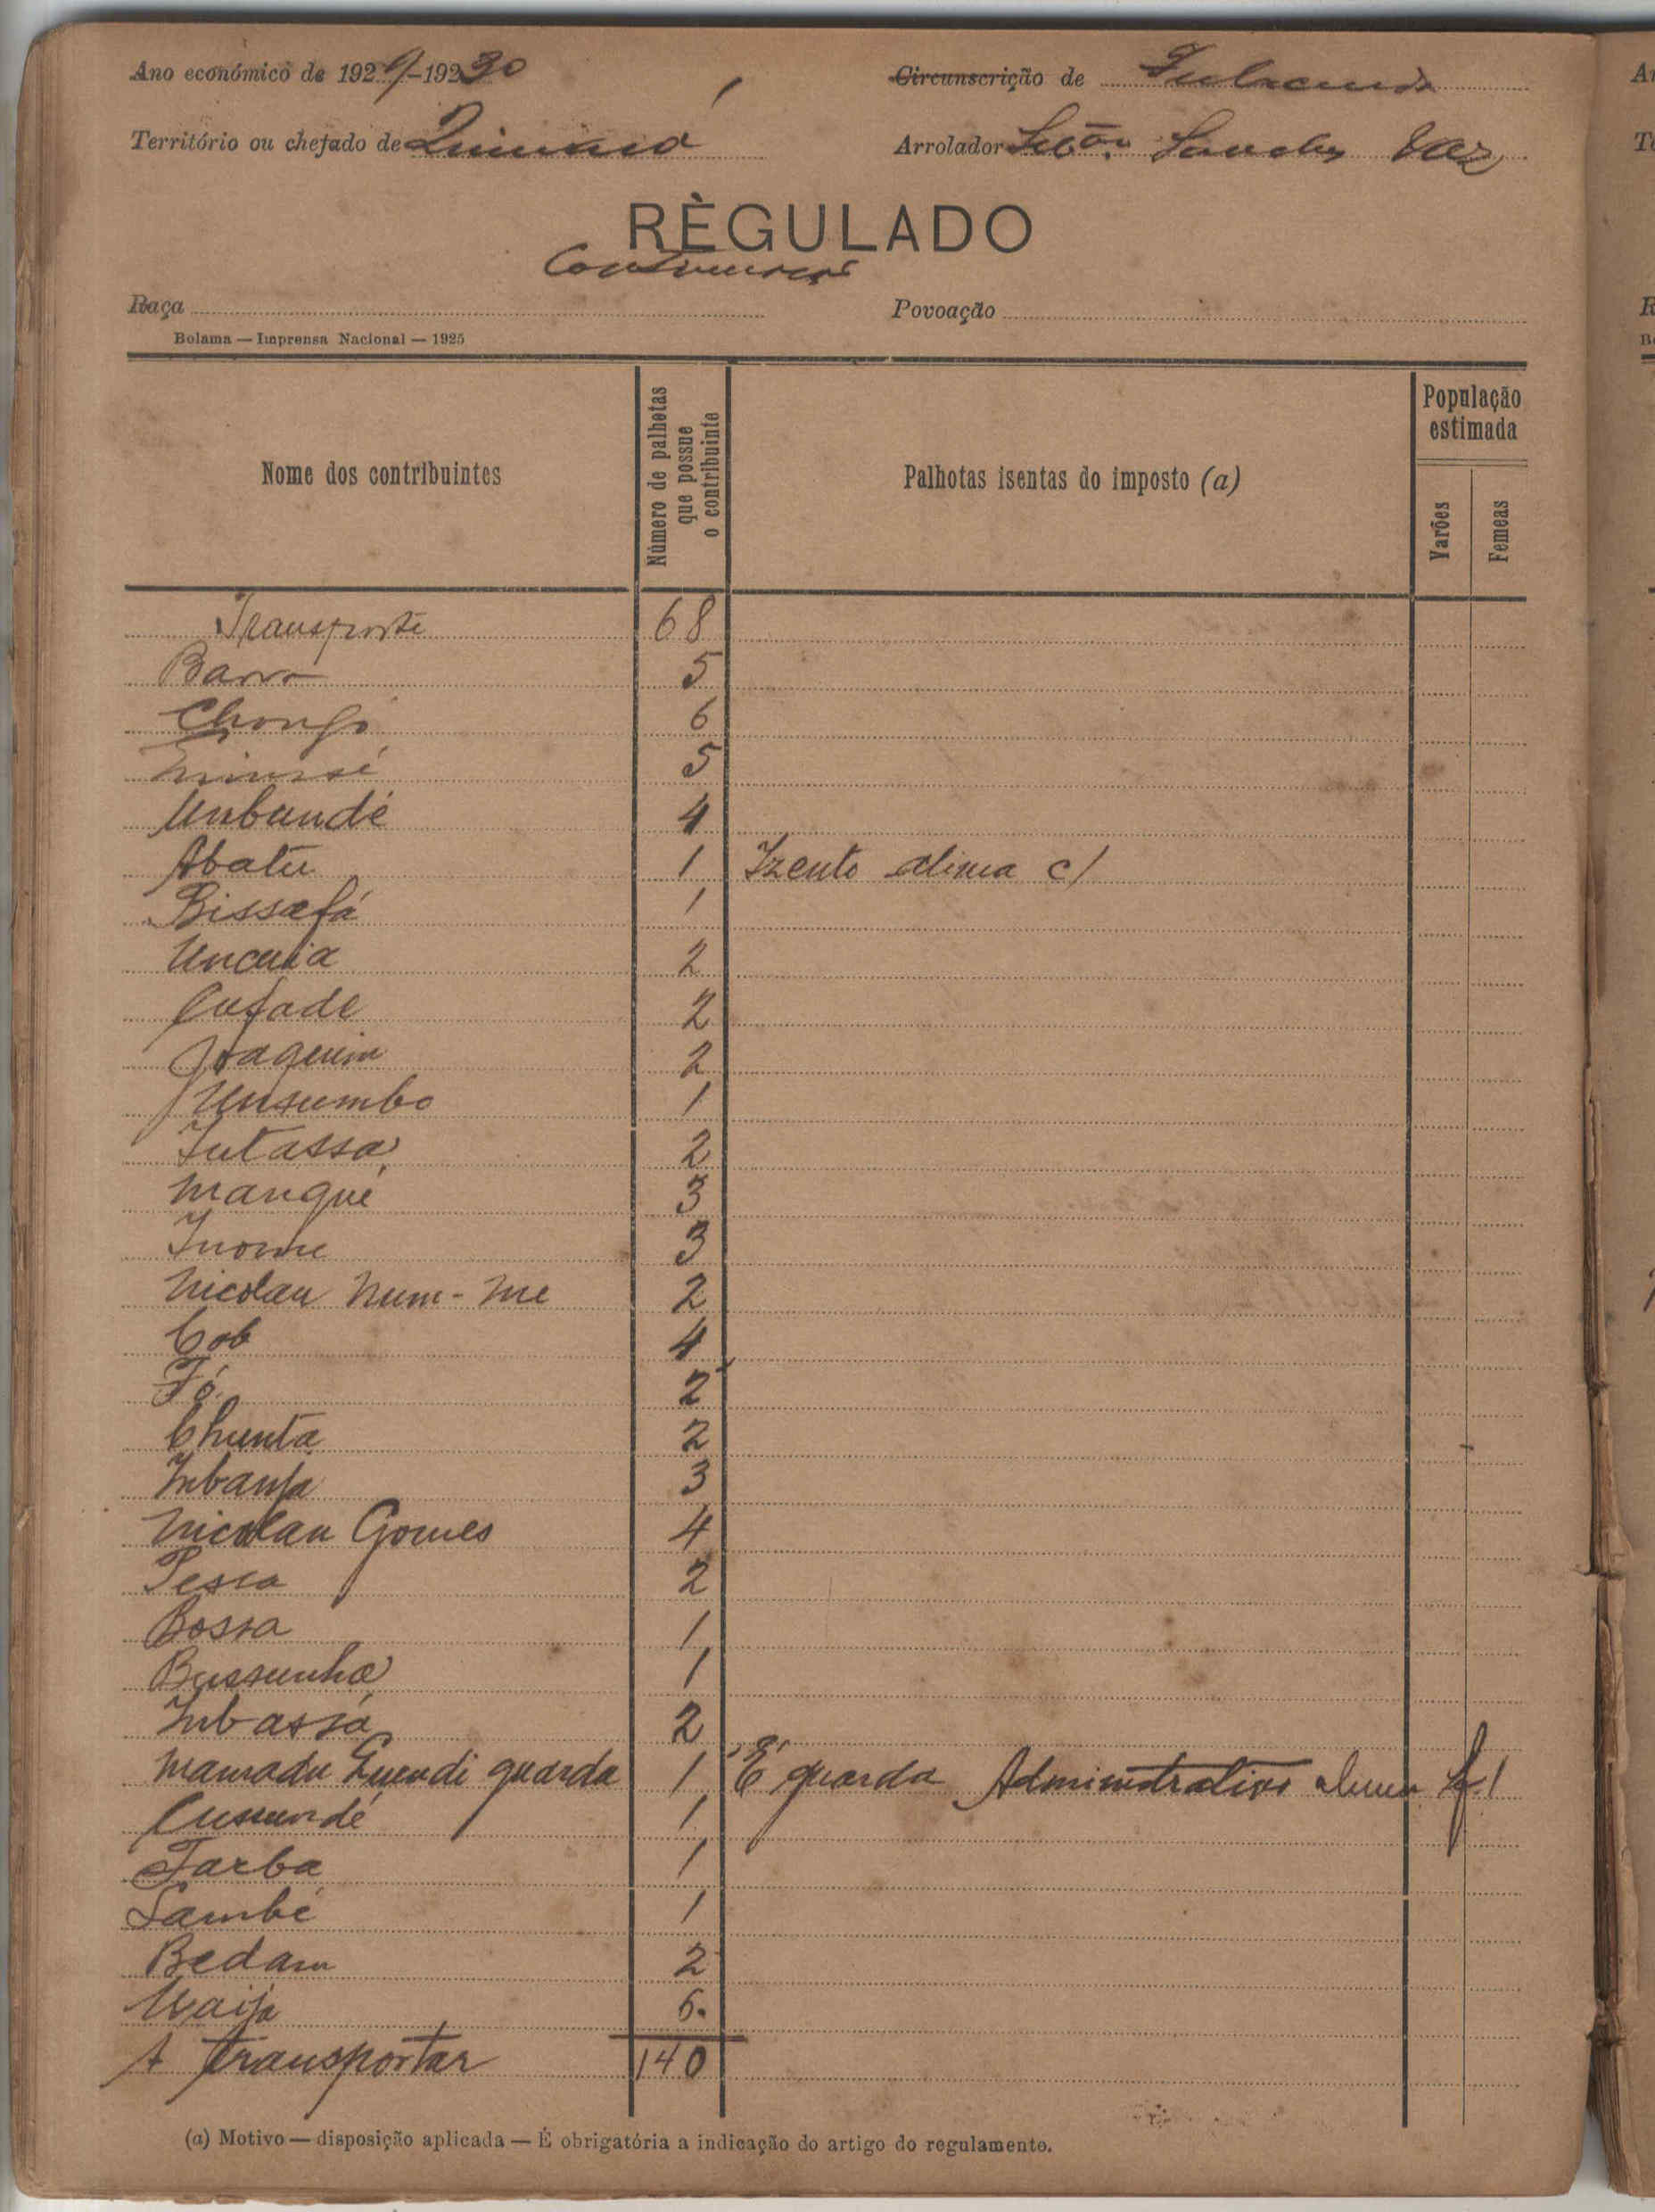 Ano económico de 1929-1930
Circunscrição de Fulacunda
Território ou chefado de Quinhará
Arrolador Seb.ão Sanches Vaz
RÈGULADO
Continuação
Raça
Povoação
Bolama — Imprensa Nacional — 1925
Nome dos contribuintes
Número de palhotas que possue o contribuinte
Palhotas isentas do imposto (a)
População estimada
Varões
Femeas
Transporte 68
Barro 5
Chongó 6
5
Unbundé 4
Abatu 1 Izento alinea c)
Bissafá 1
Uncuia 2
Cufade 2
Joaquim 2
Unsumbo 1
Jutassá 2
Mangué 3
Inome 3
Nicolau Num-Me 2
Cob 4
Fó 2
Chunta 2
Inbanja 3
Nicolau Gomes 4
Pesca 2
Bossa 1
Bussunhá 1
Inbassá 2
Mamadu Guendi guarda 1 É guarda Administrativo alinea f)
Cussundé 1
Tarba 1
Sambé 1
Bedam 2
Uaija 6.
A transportar 140
(a) Motivo — disposição aplicada — É obrigatória a indicação do artigo do regulamento.